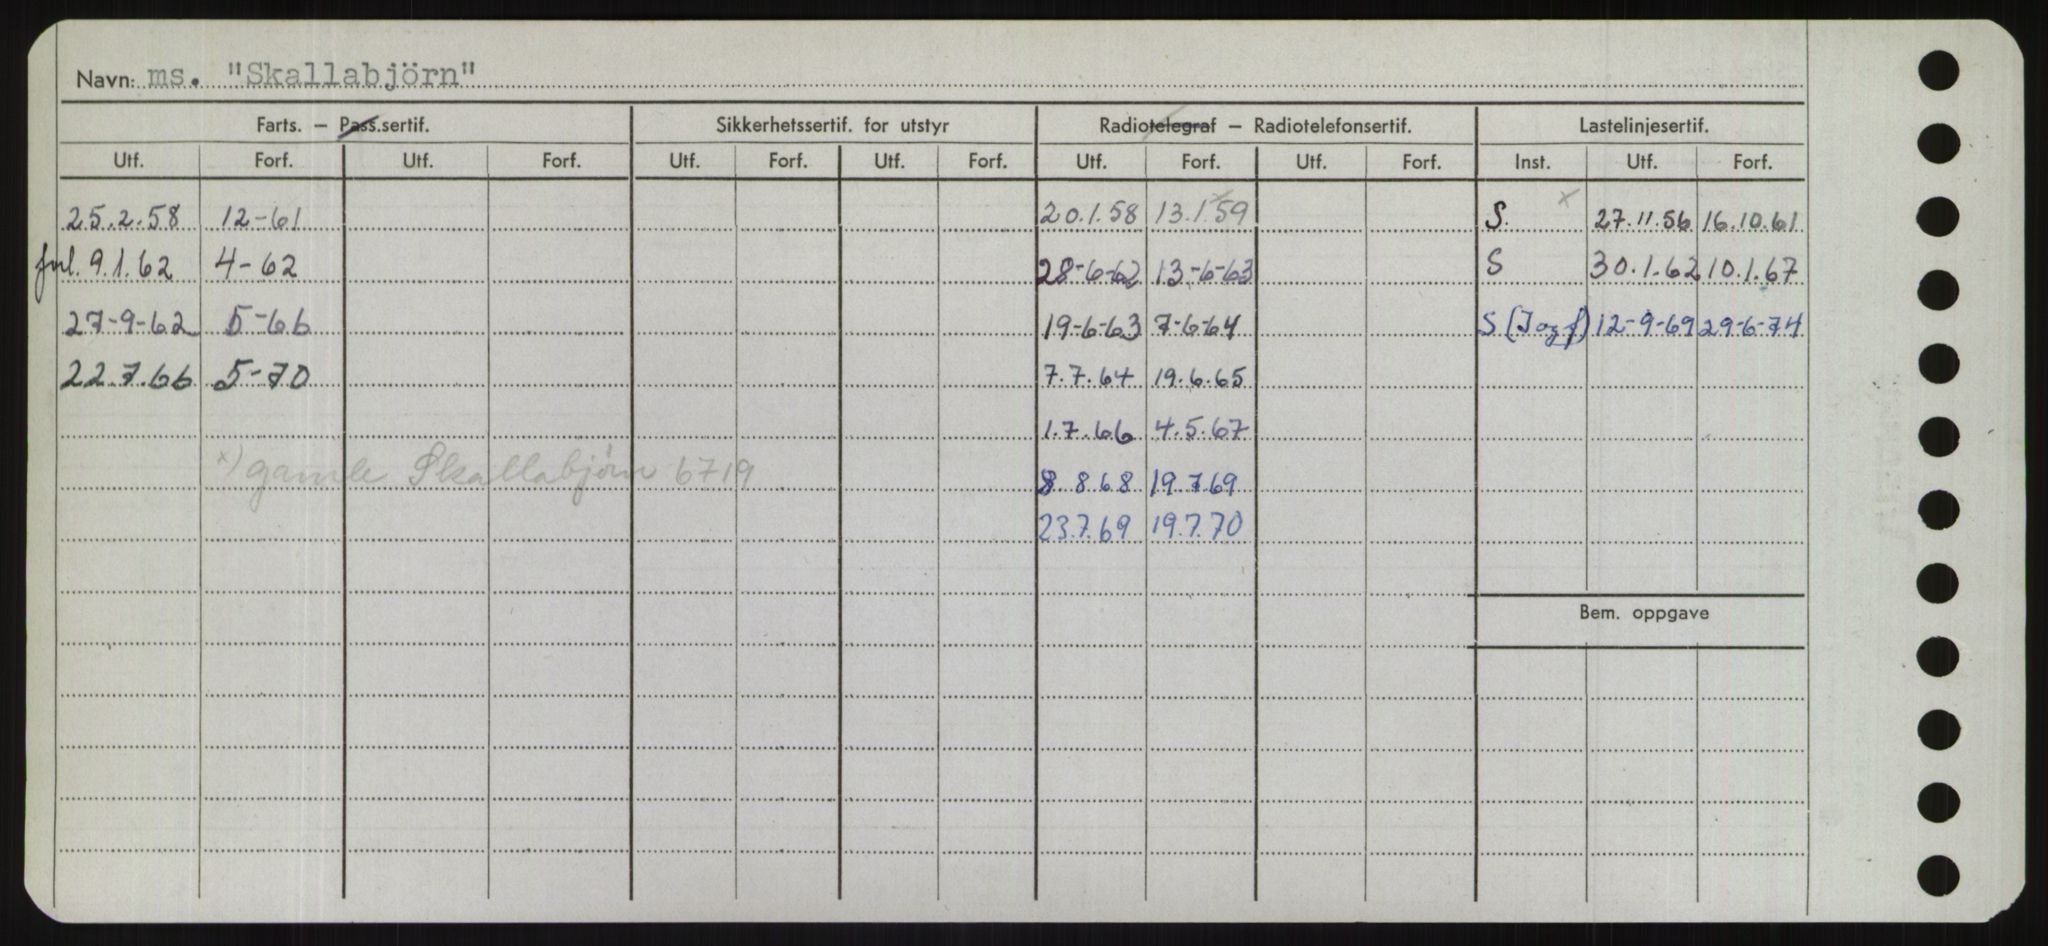 Navn: ms. "Skallabjörn"
Farts. – Pass.sertif. Sikkerhetssertif. for utstyr Radiotelegraf – Radiotelefonsertif. Lastelinjesertif.
Utf. Forf. Utf. Forf. Utf. Forf. Utf. Forf. Utf. Forf. Utf. Forf. Inst. Utf. Forf.
25.2.58 12-61 20.1.58 13.1.59 x S. x 27.11.56 16.10.61
9.1.62 4-62 28-6-62 13-6-63 S 30.1.62 10.1.67
27-9-62 5-66 19-6-63 7-6-64 S (J og f) 12-9-69 29-6-74
22.7.66 5-70 7.7.64 19.6.65
1.7.66 4.5.67
x) gamle Skallabjörn 6719 8 8 68 19 7 69
23.7.69 19.7.70
Bem. oppgave